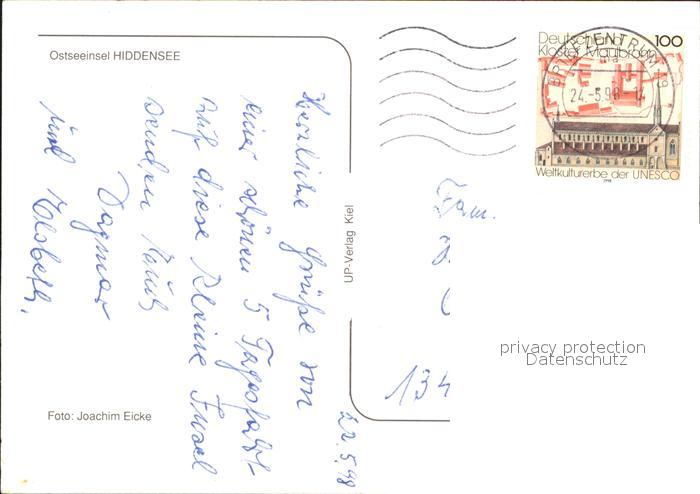 Ostseeinsel HIDDENSEE
22.5.98
Herzliche Grüße von
einer schönen 5 Tagesfahrt
auf diese kleine Insel
senden Euch
Dagmar
und Elsbeth.
Foto: Joachim Eicke
UP-Verlag Kiel
Deutschland 100
Kloster Maulbronn
BRIEFZENTRUM 18
24.-5.98-14
Weltkulturerbe der UNESCO
1998
Fam.
134
privacy protection
Datenschutz